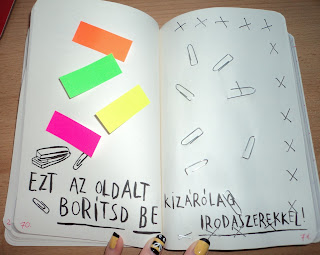 EZT AZ OLDALT KIZÁRÓLAG
BORÍTSD BE IRODASZEREKKEL!
70